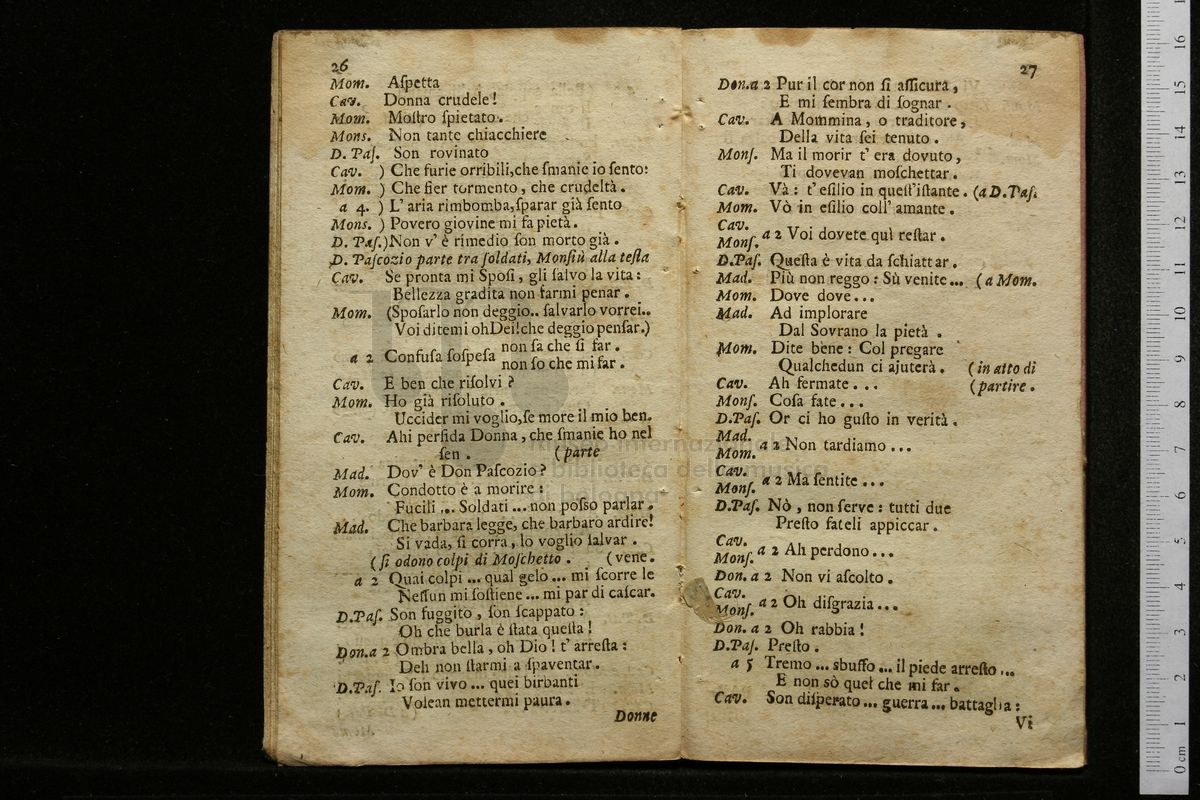 26
Mom. Aſpetta
Cav. Donna crudele!
Mom. Moſtro ſpietato.
Mons. Non tante chiacchiere
D. Paſ. Son rovinato
Cav. ) Che furie orribili,che ſmanie io ſento:
Mom. ) Che fier tormento, che crudeltà.
a 4. ) L' aria rimbomba,ſparar già ſento
Mons. ) Povero giovine mi fa pietà.
D. Paſ.)Non v' è rimedio ſon morto già.
D. Paſcozio parte tra ſoldati, Monſiù alla teſta
Cav. Se pronta mi Spoſi, gli ſalvo la vita:
Bellezza gradita non farmi penar.
Mom. (Spoſarlo non deggio.. ſalvarlo vorrei..
Voi ditemi ohDei!che deggio penſar.)
a 2 Confuſa ſoſpeſa
non ſa che ſi far.
non ſo che mi far.
Cav. E ben che riſolvi?
Mom. Ho già riſoluto.
Uccider mi voglio,ſe more il mio ben.
Cav. Ahi perfida Donna, che ſmanie ho nel
ſen. (parte
Mad. Dov' è Don Paſcozio?
Mom. Condotto è a morire:
Fucili ... Soldati ... non poſſo parlar.
Mad. Che barbara legge, che barbaro ardire!
Si vada, ſi corra, lo voglio ſalvar.
(ſi odono colpi di Moſchetto. (vene.
a 2 Quai colpi ... qual gelo ... mi ſcorre le
Neſſun mi ſoſtiene ... mi par di caſcar.
D.Paſ. Son fuggito, ſon ſcappato:
Oh che burla è ſtata queſta!
Don.a 2 Ombra bella, oh Dio! t' arreſta:
Deh non ſtarmi a ſpaventar.
D.Paſ. Io ſon vivo ... quei birbanti
Volean mettermi paura.
Donne
27
Don.a 2 Pur il cor non ſi aſſicura,
E mi ſembra di ſognar.
Cav. A Mommina, o traditore,
Della vita ſei tenuto.
Monſ. Ma il morir t' era dovuto,
Ti dovevan moſchettar.
Cav. Và: t' eſilio in queſt'iſtante. (a D.Paſ.
Mom. Vò in eſilio coll' amante.
Cav.
Monſ. a 2 Voi dovete quì reſtar.
D.Paſ. Queſta è vita da ſchiattar.
Mad. Più non reggo: Sù venite... (a Mom.
Mom. Dove dove...
Mad. Ad implorare
Dal Sovrano la pietà.
Mom. Dite bene: Col pregare
Qualchedun ci ajuterà. (in atto di
Cav. Ah fermate... (partire.
Monſ. Coſa fate...
D.Paſ. Or ci ho guſto in verità.
Mad.
Mom. a 2 Non tardiamo...
Cav.
Monſ. a 2 Ma ſentite...
D.Paſ. Nò, non ſerve: tutti due
Preſto fateli appiccar.
Cav.
Monſ. a 2 Ah perdono...
Don. a 2 Non vi aſcolto.
Cav.
Monſ. a 2 Oh diſgrazia...
Don. a 2 Oh rabbia!
D.Paſ. Preſto.
a 5 Tremo ... sbuffo ... il piede arreſto ...
E non sò quel che mi far.
Cav. Son diſperato ... guerra ... battaglia:
Vi